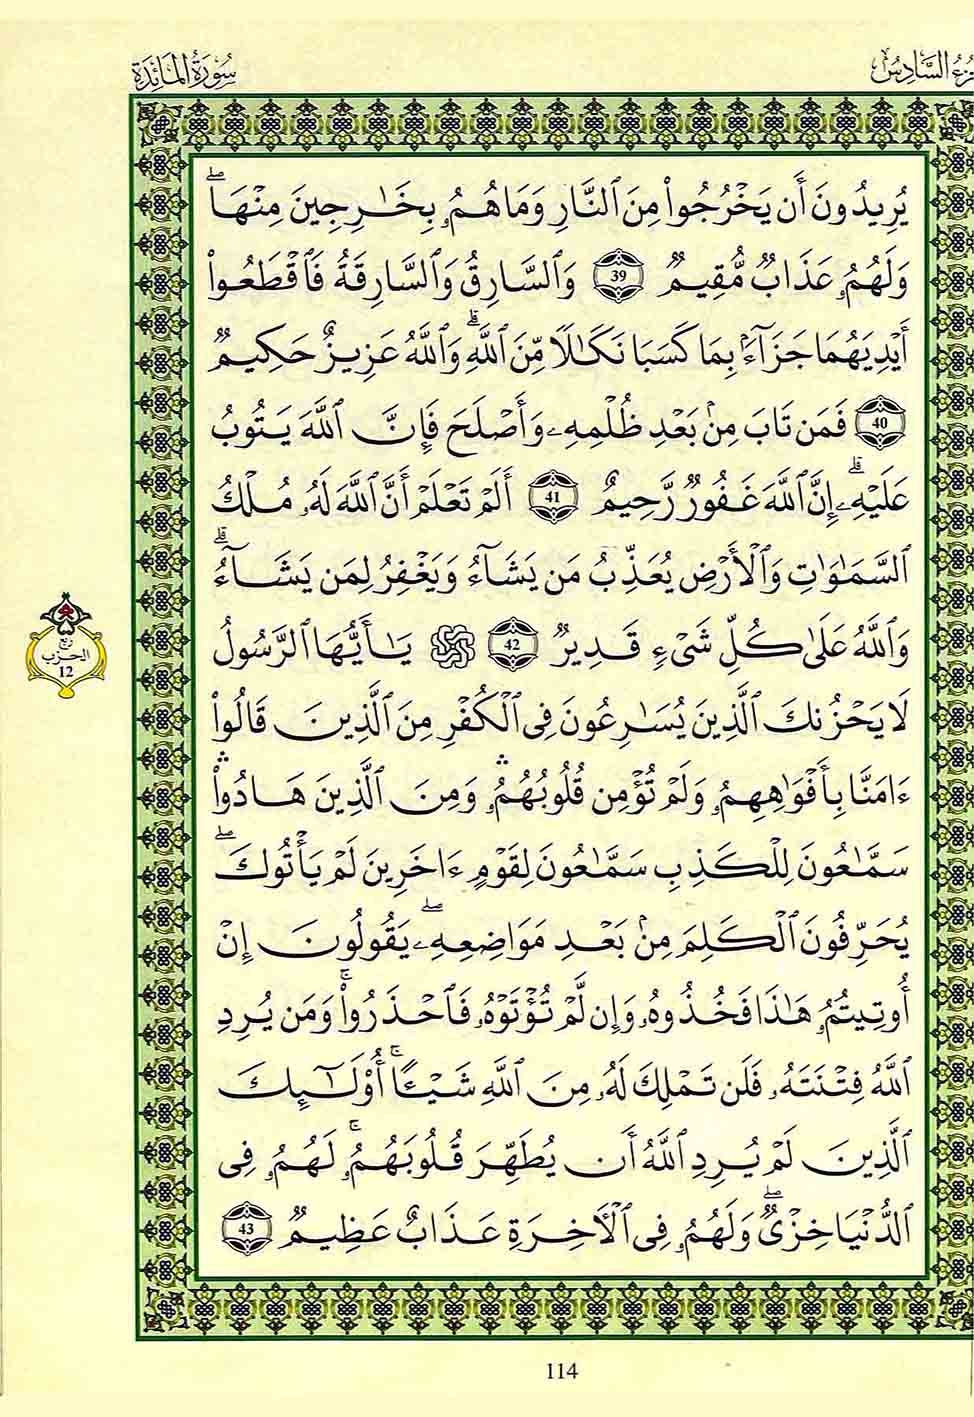 الجزء السادس
سورة المائدة
يُرِيدُونَ أَن يَخْرُجُوا۟ مِنَ ٱلنَّارِ وَمَا هُمُۥ بِخَٰرِجِينَ مِنْهَاۖ
وَلَهُمُۥ عَذَابٌ مُّقِيمٌ 39 وَٱلسَّارِقُ وَٱلسَّارِقَةُ فَٱقْطَعُوا۟
أَيْدِيَهُمَا جَزَآءَۢ بِمَا كَسَبَا نَكَٰلًا مِّنَ ٱللَّهِۗ وَٱللَّهُ عَزِيزٌ حَكِيمٌ
40 فَمَن تَابَ مِنۢ بَعْدِ ظُلْمِهِۦ وَأَصْلَحَ فَإِنَّ ٱللَّهَ يَتُوبُ
عَلَيْهِۦۗ إِنَّ ٱللَّهَ غَفُورٌ رَّحِيمٌ 41 أَلَمْ تَعْلَمْ أَنَّ ٱللَّهَ لَهُۥ مُلْكُ
ٱلسَّمَٰوَٰتِ وَٱلْأَرْضِ يُعَذِّبُ مَن يَشَآءُ وَيَغْفِرُ لِمَن يَشَآءُۗ
وَٱللَّهُ عَلَىٰ كُلِّ شَىْءٍ قَدِيرٌ 42 يَٰٓأَيُّهَا ٱلرَّسُولُ
لَا يَحْزُنكَ ٱلَّذِينَ يُسَٰرِعُونَ فِى ٱلْكُفْرِ مِنَ ٱلَّذِينَ قَالُوٓا۟
ءَامَنَّا بِأَفْوَٰهِهِمُۥ وَلَمْ تُؤْمِن قُلُوبُهُمُۥۛ وَمِنَ ٱلَّذِينَ هَادُوا۟ۛ
سَمَّٰعُونَ لِلْكَذِبِ سَمَّٰعُونَ لِقَوْمٍ ءَاخَرِينَ لَمْ يَأْتُوكَۖ
يُحَرِّفُونَ ٱلْكَلِمَ مِنۢ بَعْدِ مَوَاضِعِهِۦۖ يَقُولُونَ إِنْ
أُوتِيتُمُۥ هَٰذَا فَخُذُوهُۥ وَإِن لَّمْ تُؤْتَوْهُۥ فَٱحْذَرُوا۟ۚ وَمَن يُرِدِ
ٱللَّهُ فِتْنَتَهُۥ فَلَن تَمْلِكَ لَهُۥ مِنَ ٱللَّهِ شَيْـًٔاۚ أُو۟لَٰٓئِكَ
ٱلَّذِينَ لَمْ يُرِدِ ٱللَّهُ أَن يُطَهِّرَ قُلُوبَهُمُۥۚ لَهُمُۥ فِى
ٱلدُّنْيَا خِزْىٌۖ وَلَهُمُۥ فِى ٱلْأَخِرَةِ عَذَابٌ عَظِيمٌ 43
ربع
الحزب
12
114